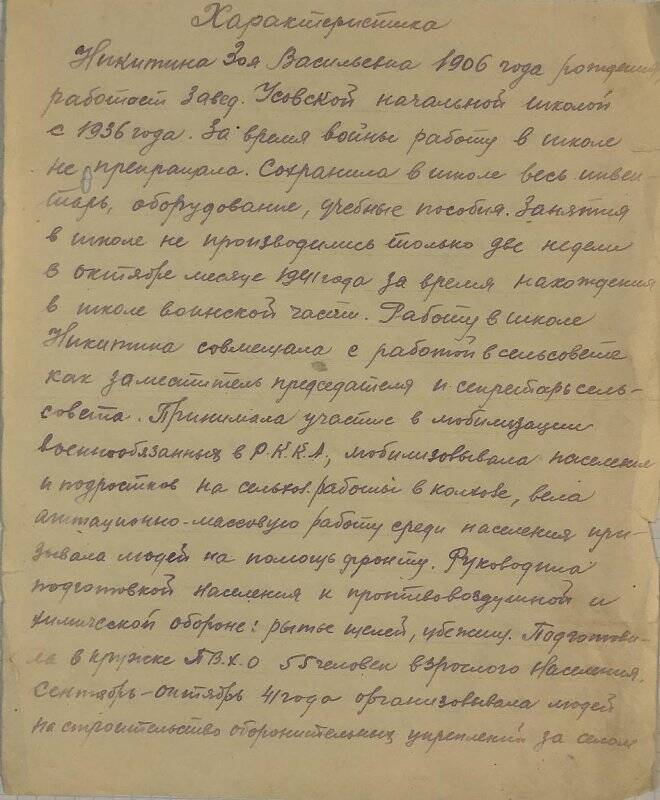 Характеристика
Никитина Зоя Васильевна 1906 года рождения,
работает завед. Усовской начальной школой
с 1936 года. За время войны работу в школе
не прекращала. Сохранила в школе весь инвен-
тарь, оборудование, учебные пособия. Занятия
в школе не производились только две недели
в октябре месяце 1941 года за время нахождения
в школе воинской части. Работу в школе
Никитина совмещала с работой в сельсовете
как заместитель председателя и секретарь сель-
совета. Принимала участие в мобилизации
военнообязанных в Р.К.К.А., мобилизовывала население
и подростков на сельхоз. работы в колхозе, вела
агитационно-массовую работу среди населения при-
зывала людей на помощь фронту. Руководила
подготовкой населения к противовоздушной и
химической обороне: рытье щелей, убежищ. Подготови-
ла в кружке П.В.Х.О 55 человек взрослого населения.
Сентябрь-октябрь 41 года организовывала людей
на строительство оборонительных укреплений за селом